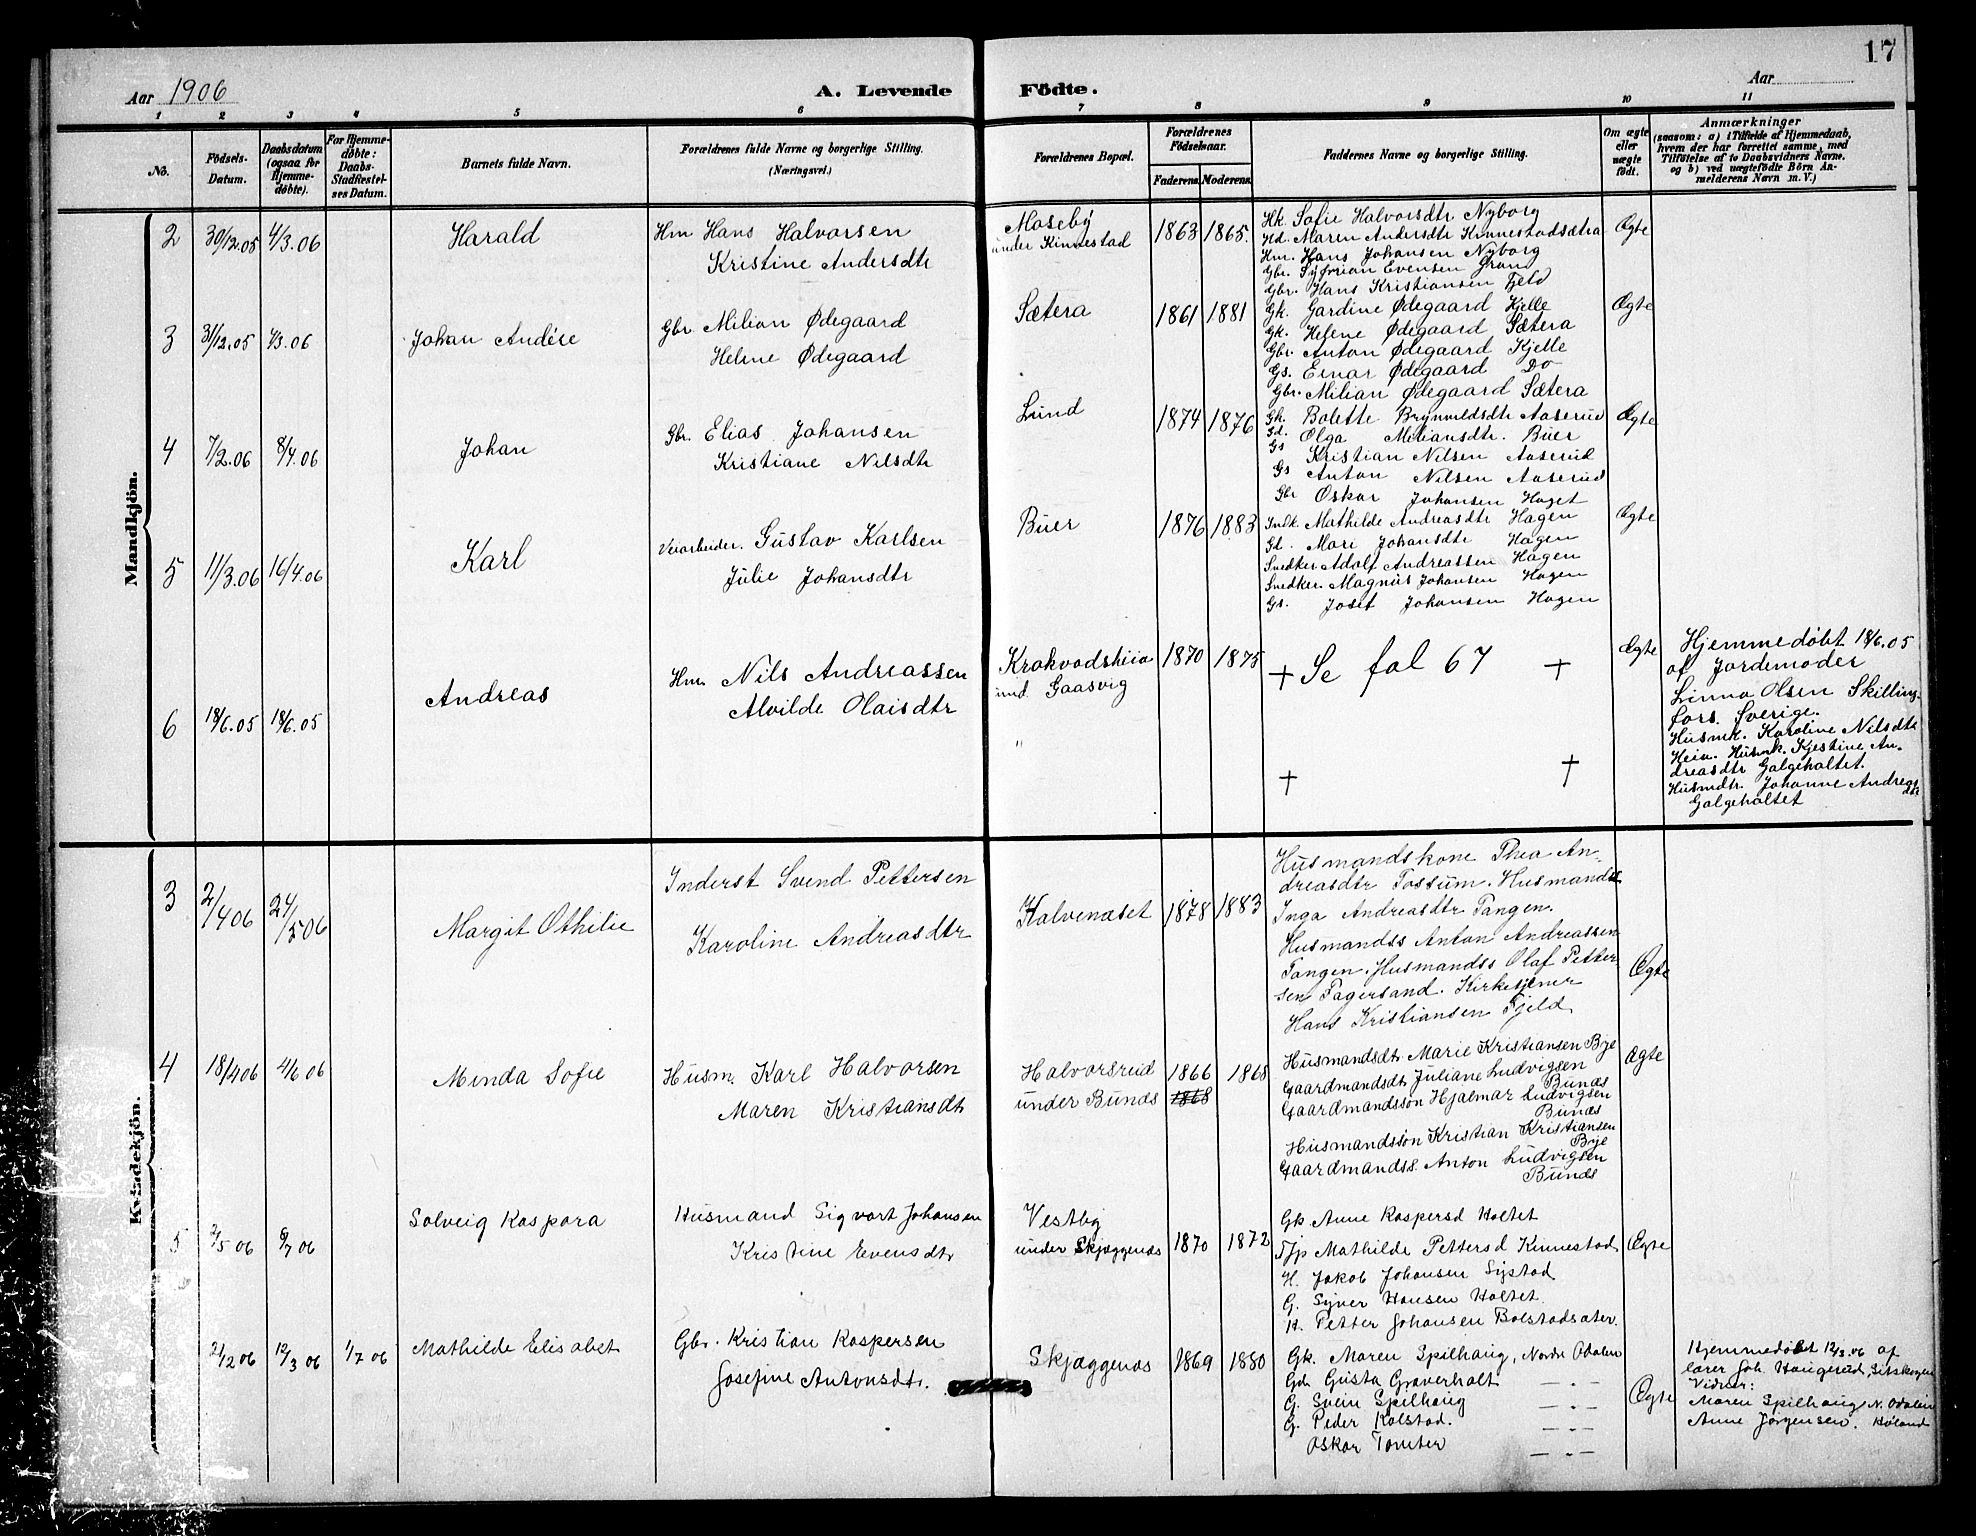 17
Aar 1906
A. Levende Födte.
Aar
1 2 3 4 5 6 7 8 9 10 11
No.
Födsels-
Datum.
Daabsdatum
(ogsaa for
Hjemme-
døbte).
For Hjemme-
døbte:
Daabs-
Stadfæstel-
ses Datum.
Barnets fulde Navn.
Forældrenes fulde Navne og borgerlige Stilling.
(Næringsvei.)
Forældrenes Bopæl.
Forældrenes
Födselsaar.
Faderens. Moderens.
Faddernes Navne og borgerlige Stilling.
Om ægte
eller
uægte
født.
Anmærkninger
(saasom: a) i Tilfælde af Hjemmedaab,
hvem der har forrettet samme, med
Tilføielse af to Daabsvidners Navne.
og b) ved uægtefødte Börn An-
melderens Navn m. V.)
Mandkjön.
2 30/12.05 4/3.06 Harald
Hm Hans Halvorsen
Kristine Andersdtr
Moseby
under Kinnestad
1863 1865.
Hk. Sofie Halvorsdtr Nyborg
Hd. Maren Andersdtr Kinnestadsætra
Hm. Hans Johansen Nyborg
Gbr. Syfrian Evensen Grand
Gbr. Hans Kristiansen Fjeld
Ægte
3 31/12.05 4/3.06 Johan Andére
Gbr Milian Ødegaard
Helene Ødegaard
Sætera
1861 1881
Gk. Gardine Ødegaard Kjelle
Gk. Helene Ødegaard Sætera
Gbr. Anton Ødegaard Kjelle
Gs. Einar Ødegaard Do
Gbr. Milian Ødegaard Sætera
Ægte
4 7/2.06 8/4.06 Johan
Gbr. Elias Johansen
Kristiane Nilsdtr
Lund
1874 1876
Gk. Bolette Brynildsdtr Aaserud
Gd. Olga Miliansdtr. Buer
Gs Kristian Nilsen Aaserud
Gs Anton Nilsen Aaserud
Gbr Oskar Johansen Haget
Ægte
5 11/3.06 16/4.06 Karl
Veiarbeider. Gustav Karlsen
Julie Johansdtr
Buer
1876 1883
Indk. Mathilde Andreasdtr Hagen
Gd. Mari Johansdtr Hagen
Snedker Adolf Andreassen Hagen
Snedker. Magnus Johansen Hagen
Gs. Josef Johansen Hagen
Ægte
6 18/6.05 18/6.05 Andreas
Hm. Nils Andreassen
Alvilde Olaisdtr
Krokvadsheia
und. Gaasvig
1870 1875
+ Se fol 67 +
† †
Ægte
Hjemmedøbt 18/6.05
af Jordemoder
Linna Olsen Skilling-
fors. Sverige.
Husmk. Karoline Nilsdtr
Heia. Husmk. Kjestine An-
dreasdtr Galgeholtet.
Husmdtr. Johanne Andreas
dtr
Galgeholtet
Kvindekjön.
3 2/4 06 24/5 06 Margit Othilie
Inderst Svend Pettersen
Karoline Andreasdtr
Kalvenæset
1878 1883
Husmandskone Thea An-
dreasdtr Fossum. Husmandsd
Inga Andreasdtr Tangen.
Husmandss Anton Andreassen
Tangen. Husmandss Olaf Petter-
sen Fagersand. Kirketjener
Hans Kristiansen Fjeld
Ægte
4 18/4 06 4/6 06 Minda Sofie
Husm. Karl Halvorsen
Maren Kristiansdtr
Halvorsrud
under Bunæs
1866 1868
1868
Husmandsdtr. Marie Kristiansen Bye
Gaardmandsdtr Juliane Ludvigsen
Bunæs
Gaardmandssøn Hjalmar Ludvigsen
Bunæs
Husmandssön Kristian Kristiansen
Bye
Gaardmandss. Anton Ludvigsen
Bunæs
Ægte
5 2/5 06 8/7 06 Solveig Kaspara
Husmand Sigvart Johansen
Kristine Evensdtr
Vestby
under Skjæggenæs
1870 1872
Gk Anne Kaspersd Holtet
Tjp Mathilde Pettersd Kinnestad
H. Jakob Johansen Systad
G. Syver Hansen Holtet
H. Petter Johansen Bolstadsæter
Ægte
2/2 06 12/3 06 1/7 06 Mathilde Elisabet
Gbr. Kristian Kaspersen
Josefine Antonsdtr.
Skjæggenæs
1869 1880
Gk. Maren Spilhaug, Nordre Odalen
Gd. Gusta Graverholt — „ —
G. Svein Spilhaug — „ —
G. Peder Kolstad. — „ —
Oskar Tomter — „ —
Ægte
Hjemmedøbt 12/3.06 af
lærer Joh. Haugerud, Setskogen
Vidner:
Maren Spilhaug N. Odalen
Anne Jørgensen, Høland